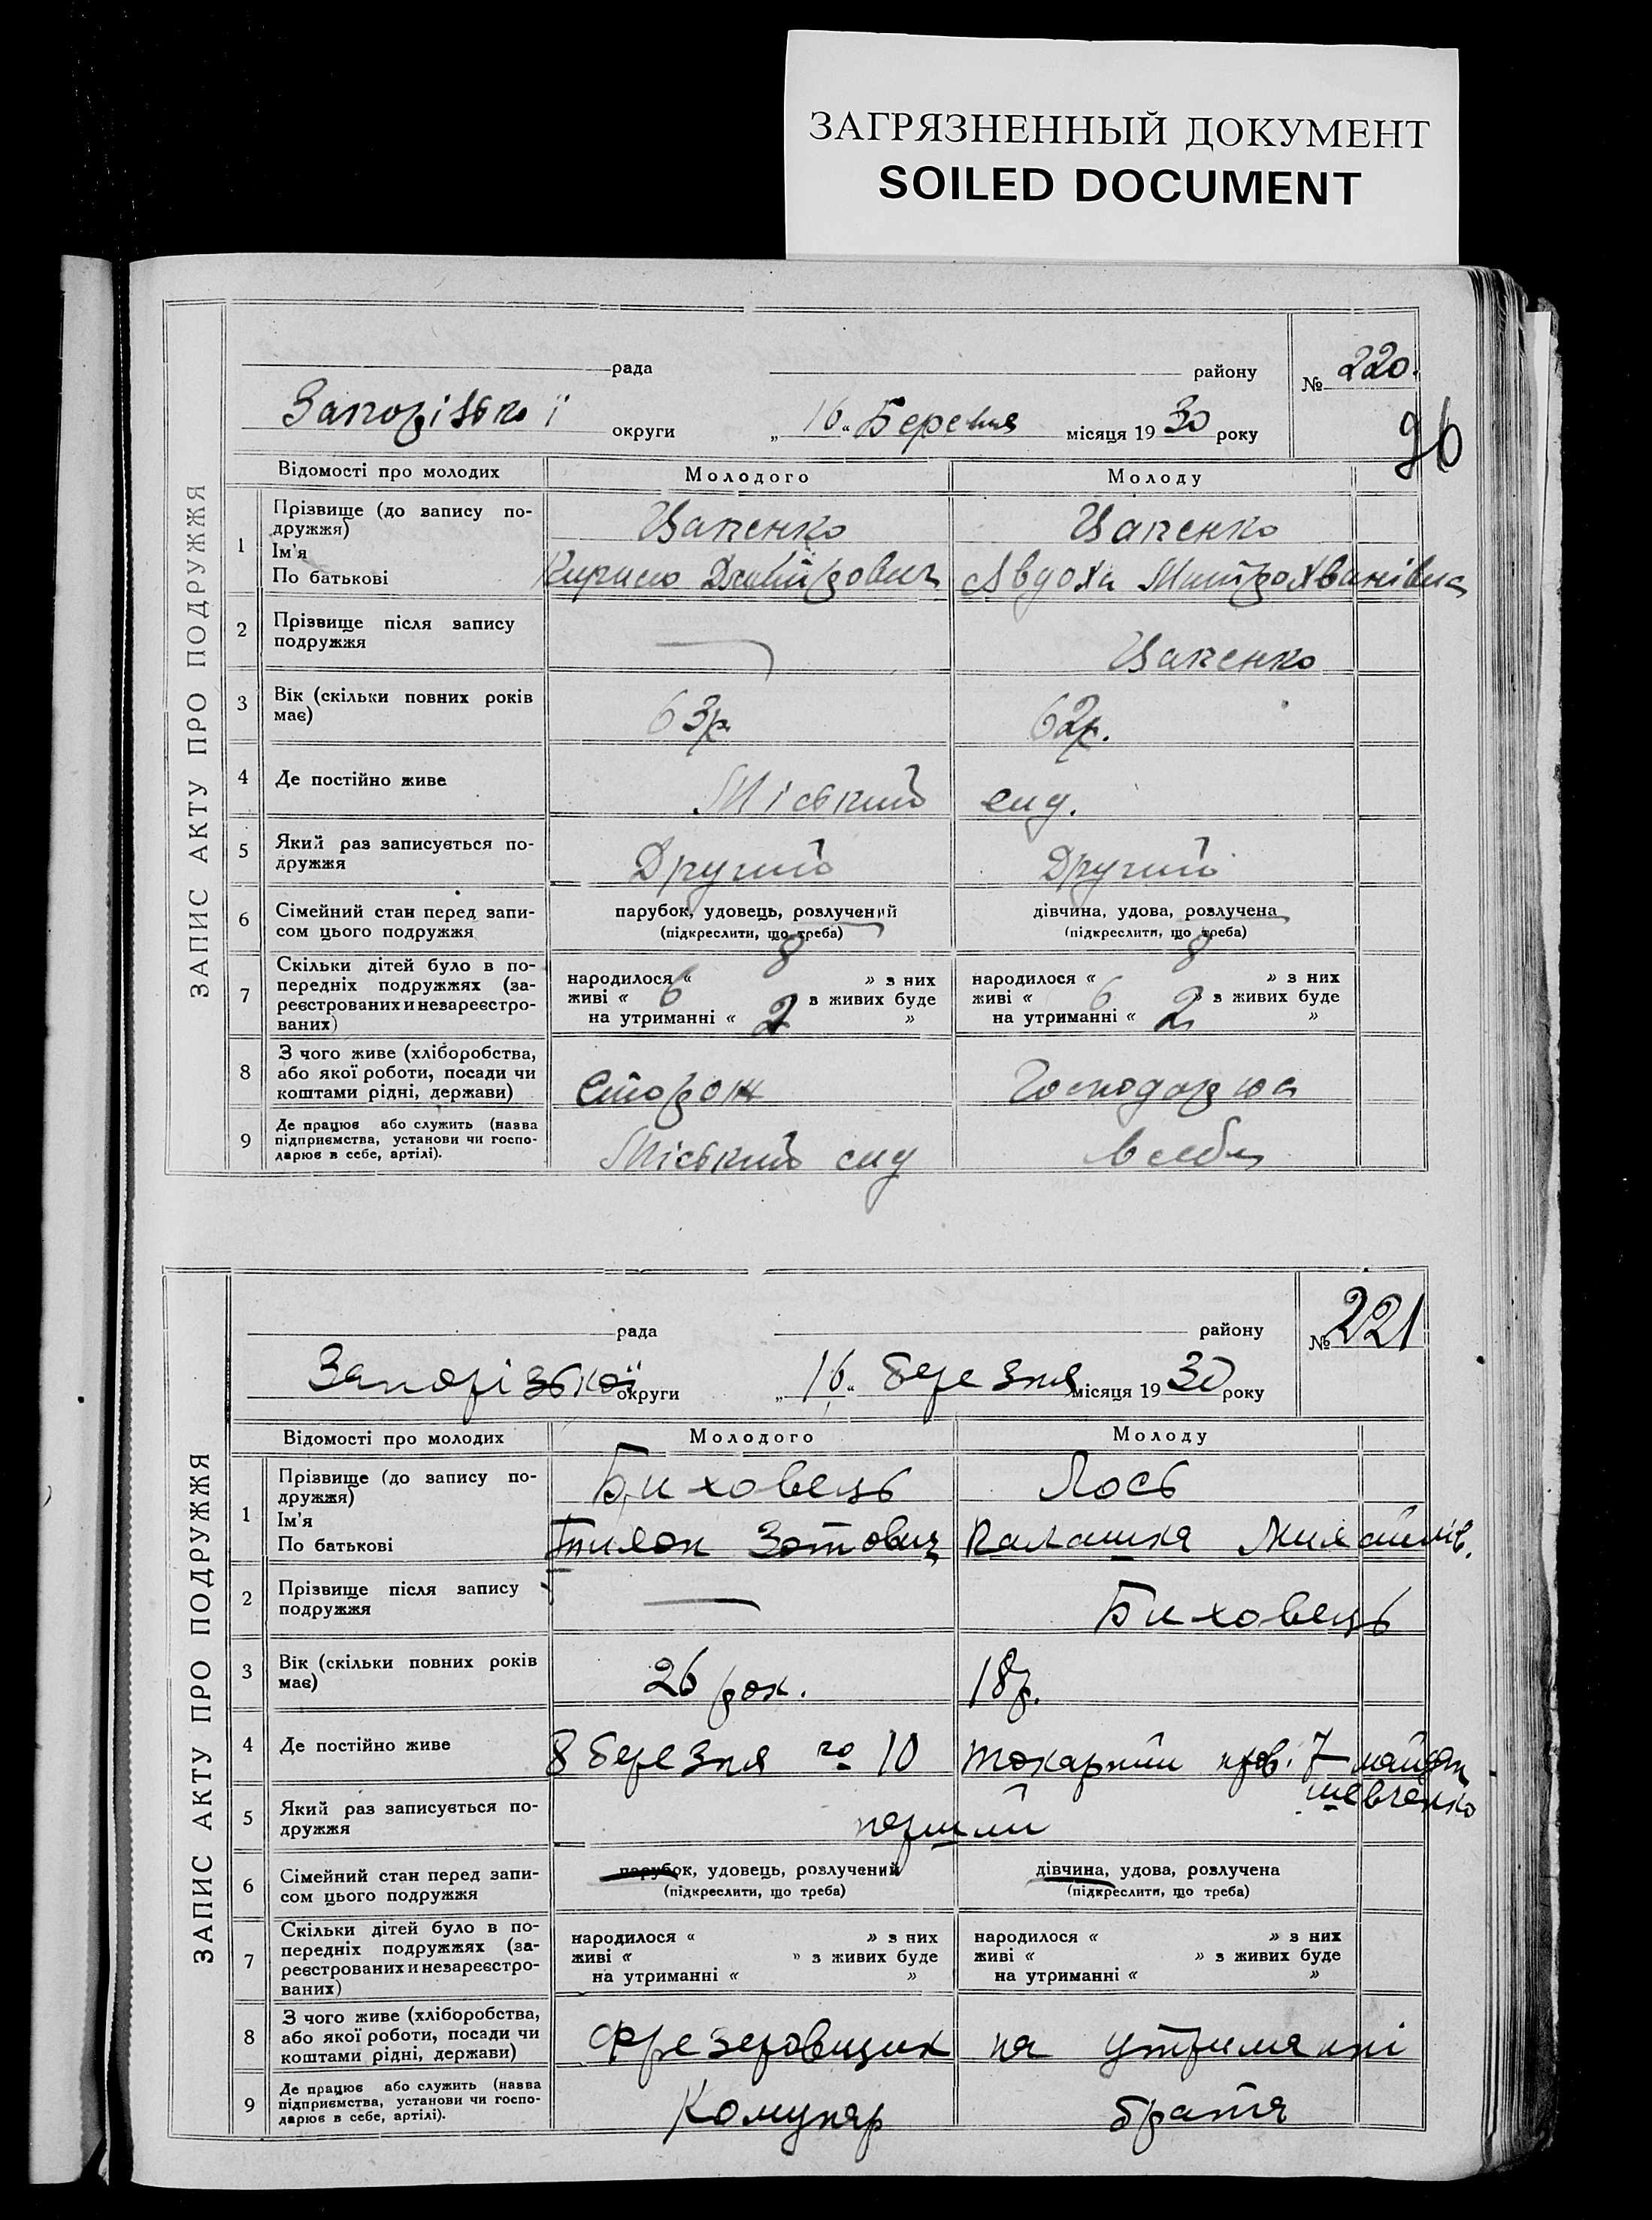 ЗАГРЯЗНЕННЫЙ ДОКУМЕНТ
SOILED DOCUMENT
ЗАПИС АКТУ ПРО ПОДРУЖЖЯ
рада района № 220.
Запорізької округи „16“ Березня місяця 1930 року
96
Відомості про молодих Молодого Молоду
1 Прізвище (до запису по-
дружжя) Цапенко Цапенко
Ім'я
По батькові Кирило Дмитрович Авдоха Митрохванівна
2 Прізвище після запису
подружжя — Цапенко
3 Вік (скільки повних років
має) 63р. 62р.
4 Де постійно живе Міський сид.
5 Який раз записується по-
дружжя Другий Другий
6 Сімейний стан перед запи-
сом цього подружжя
парубок, удовець, розлучений
(підкреслити, що треба)
дівчина, удова, розлучена
(підкреслити, що треба)
7 Скільки дітей було в по-
передніх подружжях (за-
реєстрованих и незареєстро-
ваних)
народилося « 8 » з них
живі « 6 » з живих буде
на утриманні « 2 »
народилося « 8 » з них
живі « 6 » з живих буде
на утриманні « 2 »
8 З чого живе (хліборобства,
або якої роботи, посади чи
коштами рідні, держави) Сторож Господарка
9 Де працює або служить (назва
підприємства, установи чи госпо-
дарює в себе, артілі). Міський сид в себя
ЗАПИС АКТУ ПРО ПОДРУЖЖЯ
рада району № 221
Запорізької округи „16“ березня місяця 1930 року
Відомості про молодих Молодого Молоду
1 Прізвище (до запису по-
дружжя) Биховець Лось
Ім'я
По батькові Тихон Зотович Палашка Михайлів.
2 Прізвище після запису
подружжя — Биховець
3 Вік (скільки повних років
має) 26 рок. 18р.
4 Де постійно живе 8 березня го 10 токарний пров. 7
шевченко
5 Який раз записується по-
дружжя перший
6 Сімейний стан перед запи-
сом цього подружжя
парубок, удовець, розлучений
(підкреслити, що треба)
дівчина, удова, розлучена
(підкреслити, що треба)
7 Скільки дітей було в по-
передніх подружжях (за-
реєстрованих и незареєстро-
ваних)
народилося « » з них
живі « » з живих буде
на утриманні « »
народилося « » з них
живі « » з живих буде
на утриманні « »
8 З чого живе (хліборобства,
або якої роботи, посади чи
коштами рідні, держави) Фрезеровщик на утриманні
9 Де працює або служить (назва
підприємства, установи чи госпо-
дарює в себе, артілі). Комунар брата